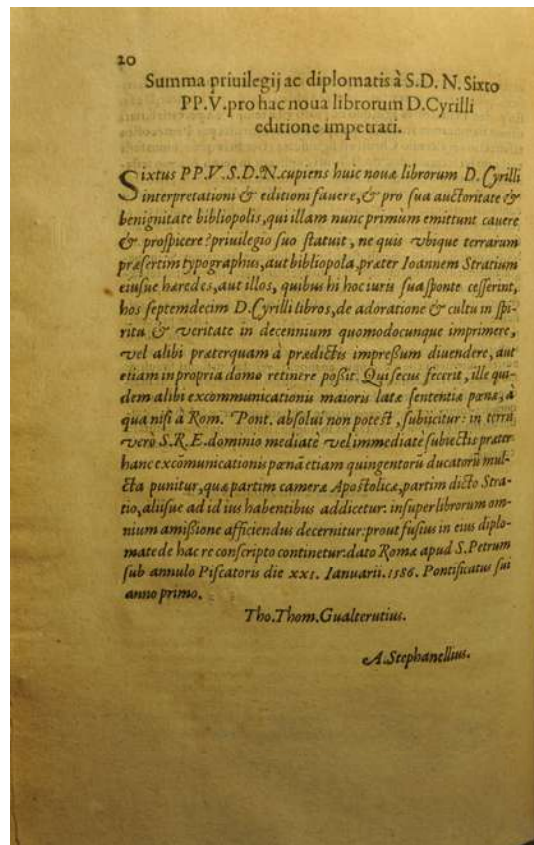 20
Summa priuilegij ac diplomatis à S.D. N. Sixto
PP.V. pro hac noua librorum D.Cyrilli
editione impetrati.
Sixtus PP.V.S.D.N.cupiens huic nouæ librorum D. Cyrilli
interpretationi & editioni fauere,& pro sua auctoritate &
benignitate bibliopolis,qui illam nunc primùm emittunt cauere
& prospicere?priuilegio suo statuit, ne quis vbique terrarum
præsertim typographus,aut bibliopola,præter Ioannem Stratium
eiusue hæredes,aut illos, quibus hi hoc iuris sua sponte cesserint,
hos septemdecim D.Cyrilli libros,de adoratione & cultu in spi-
ritu & veritate in decennium quomodocunque imprimere,
vel alibi præterquam à prædictis impressum diuendere, aut
etiam in propria domo retinere possit. Qui secus fecerit, ille qui-
dem alibi excommunicationis maioris latæ sententiæ pœnæ, à
qua nisi à Rom. Pont. absolui non potest, subijcitur: in terris
verò S.R.E.dominio mediatè vel immediatè subiectis præter
hanc excōmunicationis pœnā etiam quingentorū ducatorū mul-
cta punitur,quæ partim cameræ Apostolicæ,partim dicto Stra-
tio,aliisue ad id ius habentibus addicetur. insuper librorum om-
nium amissione afficiendus decernitur:prout fusius in eius diplo-
mate de hac re conscripto continetur.dato Romæ apud S.Petrum
sub annulo Piscatoris die xxi. Ianuarii.1586. Pontificatus sui
anno primo.
Tho.Thom.Gualterutius.
A.Stephanellius.